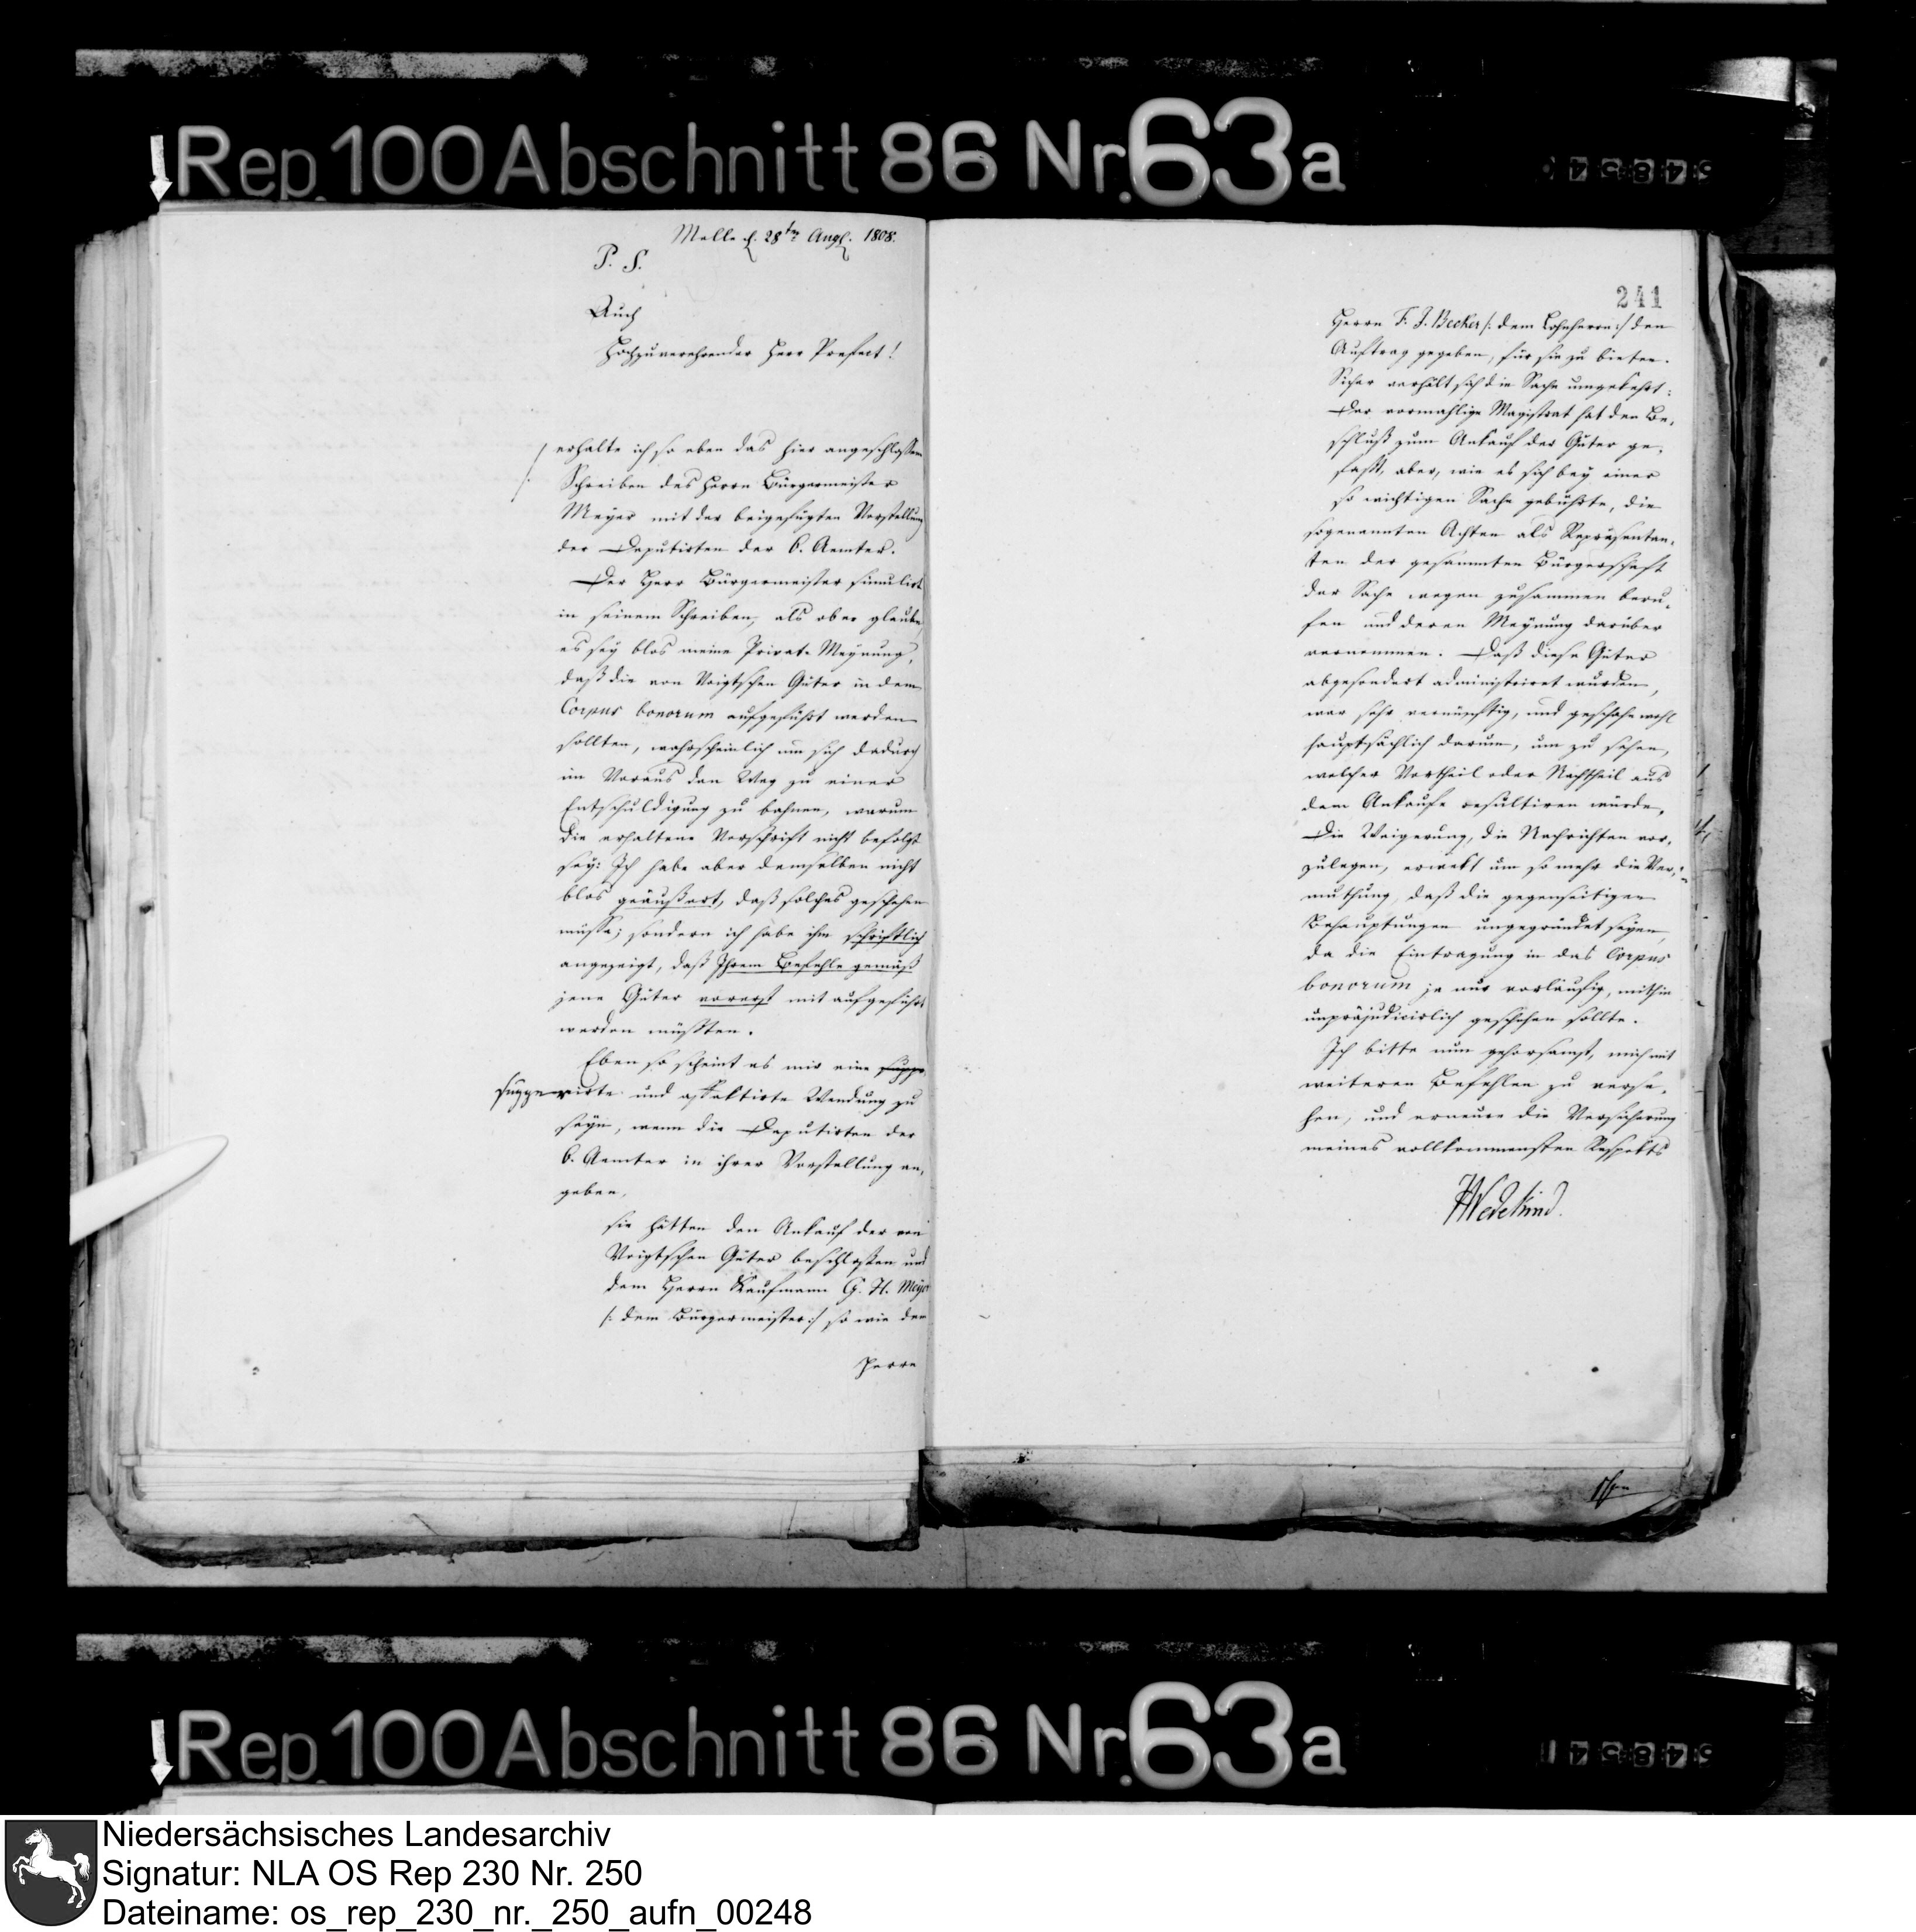 Rep. 100 Abschnitt 86 Nr. 63a
Melle d. 28ten Augs. 1808.
P. S.
Auch
Hochzuverehrender Herr Praefect!
erhalte ich so eben das hier angeschlossene
Schreiben des Herrn Bürgermeister
Meyer mit der beigefügten Vorstellung
der Deputirten der 6. Aemter.
Der Herr Bürgermeister simulirt
in seinem Schreiben, als ob er glaube,
es sey blos meine Privat-Meynung,
daß die von Voigtschen Güter in dem
Corpus bonorum aufgeführt werden
sollten, wahrscheinlich um sich dadurch
im Voraus den Weg zu einer
Entschuldigung zu bahnen, warum
die erhaltene Vorschrift nicht befolgt
sey: Ich habe aber demselben nicht
blos geäußert, daß solches geschehen
müsse; sondern ich habe ihm schriftlich
angezeigt, daß Ihrem Befehle gemäß
jene Güter vorerst mit aufgeführt
werden müßten.
Eben so scheint es mir eine suppe
suggerirte und affektirte Wendung zu
seyn, wenn die Deputirten der
6. Aemter in ihrer Vorstellung an-
geben,
sie hätten den Ankauf der von
Voigtschen Güter beschloßen und
dem Herrn Kaufmann G. H. Meyer
/: dem Bürgermeister :/ so wie dem
Herrn
241
Herrn F. J. Becker /: dem Lohnherrn :/ den
Auftrag gegeben, für sie zu bieten.
Sicher verhält sich die Sache umgekehrt:
Der vormahlige Magistrat hat den Be-
schluß zum Ankauf der Güter ge-
faßt, aber, wie es sich bey einer
so wichtigen Sache gebührte, die
sogenannten Achten als Repräsentan-
ten der gesammten Bürgerschaft
der Sache wegen zusammen beru-
fen und deren Meynung darüber
vernommen. Daß diese Güter
abgesondert administriret wurden,
war sehr vernünftig, und geschahe wohl
hauptsächlich darum, um zu sehen,
welcher Vortheil oder Nachtheil aus
dem Ankaufe resultiren würde.
Die Weigerung, die Nachrichten vor-
zulegen, erwekt um so mehr die Ver-
muthung, daß die gegenseitigen
Behauptungen ungegründet seyen,
da die Eintragung in das Corpus
bonorum ja nur vorläufig, mithin
unpräjudicirlich geschehen sollte.
Ich bitte nun gehorsamst, mich mit
weiteren Befehlen zu verse-
hen, und erneure die Versicherung
meines vollkommensten Respekts
Wedekind.
Rep. 100 Abschnitt 86 Nr. 63a
Niedersächsisches Landesarchiv
Signatur: NLA OS Rep 230 Nr. 250
Dateiname: os_rep_230_nr._250_aufn_00248